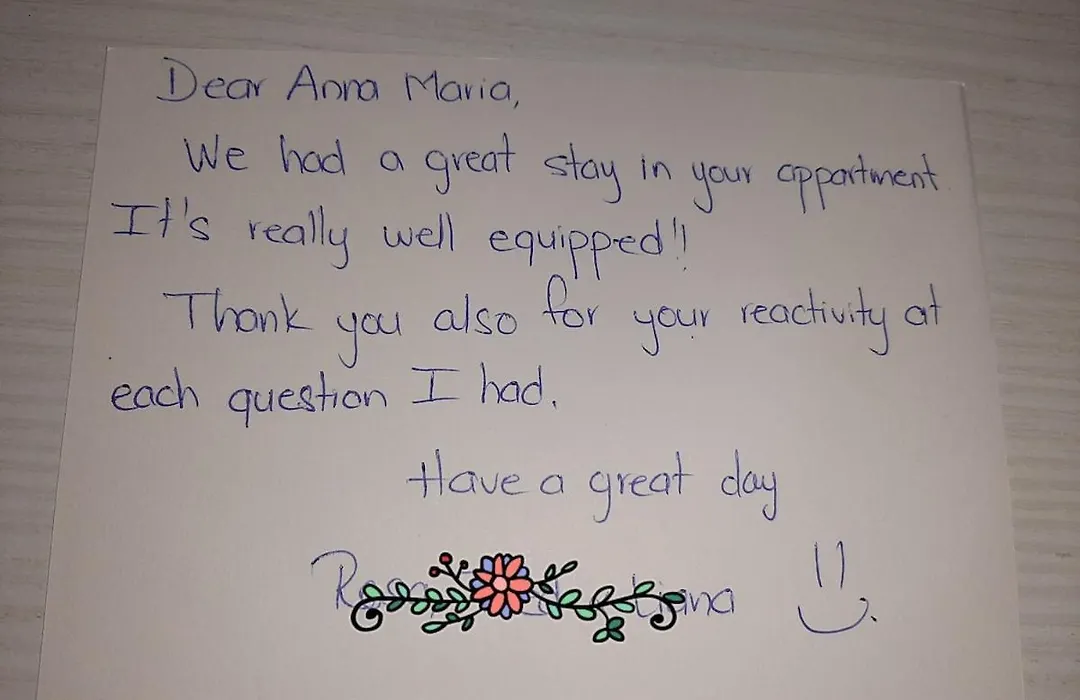 Dear Anna Maria,
We had a great stay in your appartment
It's really well equipped!!
Thank you also for your reactivity at
each question I had.
Have a great day